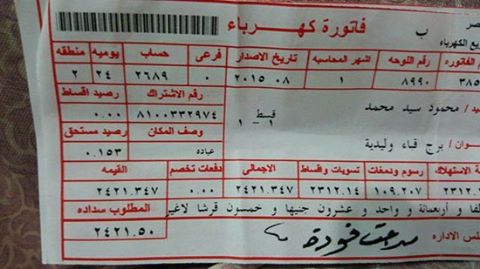 صر ب فاتورة كهرباء
يع الكهرباء
الفاتوره رقم اللوحه اشهر المحاسبه تاريخ الاصدار فرعى حساب يوميه منطقه
٣٨٥ ٨٩٩٠ ١ ٢٠١٥ ٠٨ ٠ ٢٦٨٩ ٢٤ ٢
رقم الاشتراك رصيد اقساط
يد/ محمود سيد محمد قسط ٨١٠٠٣٣٢٩٧٤ ٠.٠٠
١ - ١ وصف المكان رصيد مستحق
وان / برج قباء وليدية عباده ٠.١٥٣
ة الاستهلاك رسوم ودمغات تسويات وقساط الاجمالى دفعات تخصم القيمه
٢٣١٢. ١٠٩.٢٠٧ ٢٣١٢.١٤ ٢٤٢١.٣٤٧ ٠.٠٠ ٢٤٢١.٣٤٧
لفا و أربعمائة و واحد و عشرون جنيها و خمسون قرشا لاغير المطلوب سداده
لس الاداره ٢٤٢١.٥٠